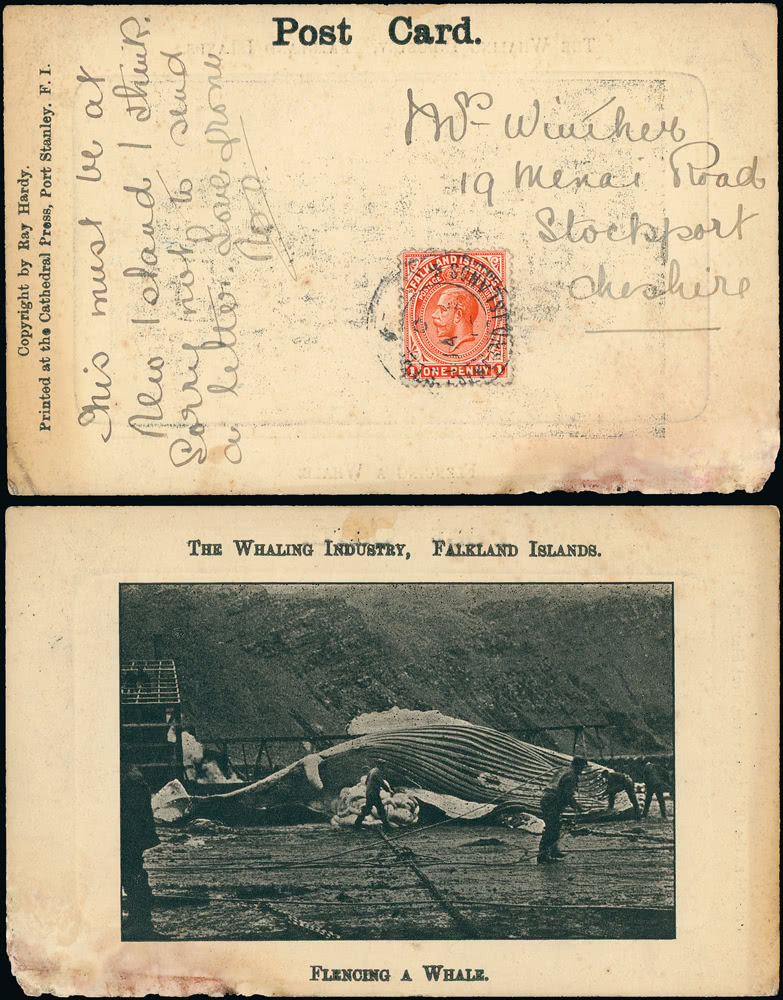 Post Card.
Copyright by Ray Hardy.
Printed at the Cathedral Press, Port Stanley. F. I.
This must be at
New Island I think.
Sorry not to send
a letter. Love from
Mrs
19 Menai Road
Stockport
Cheshire
FALKLAND ISLANDS
ONE PENNY
THE WHALING INDUSTRY, FALKLAND ISLANDS.
FLENCING A WHALE.